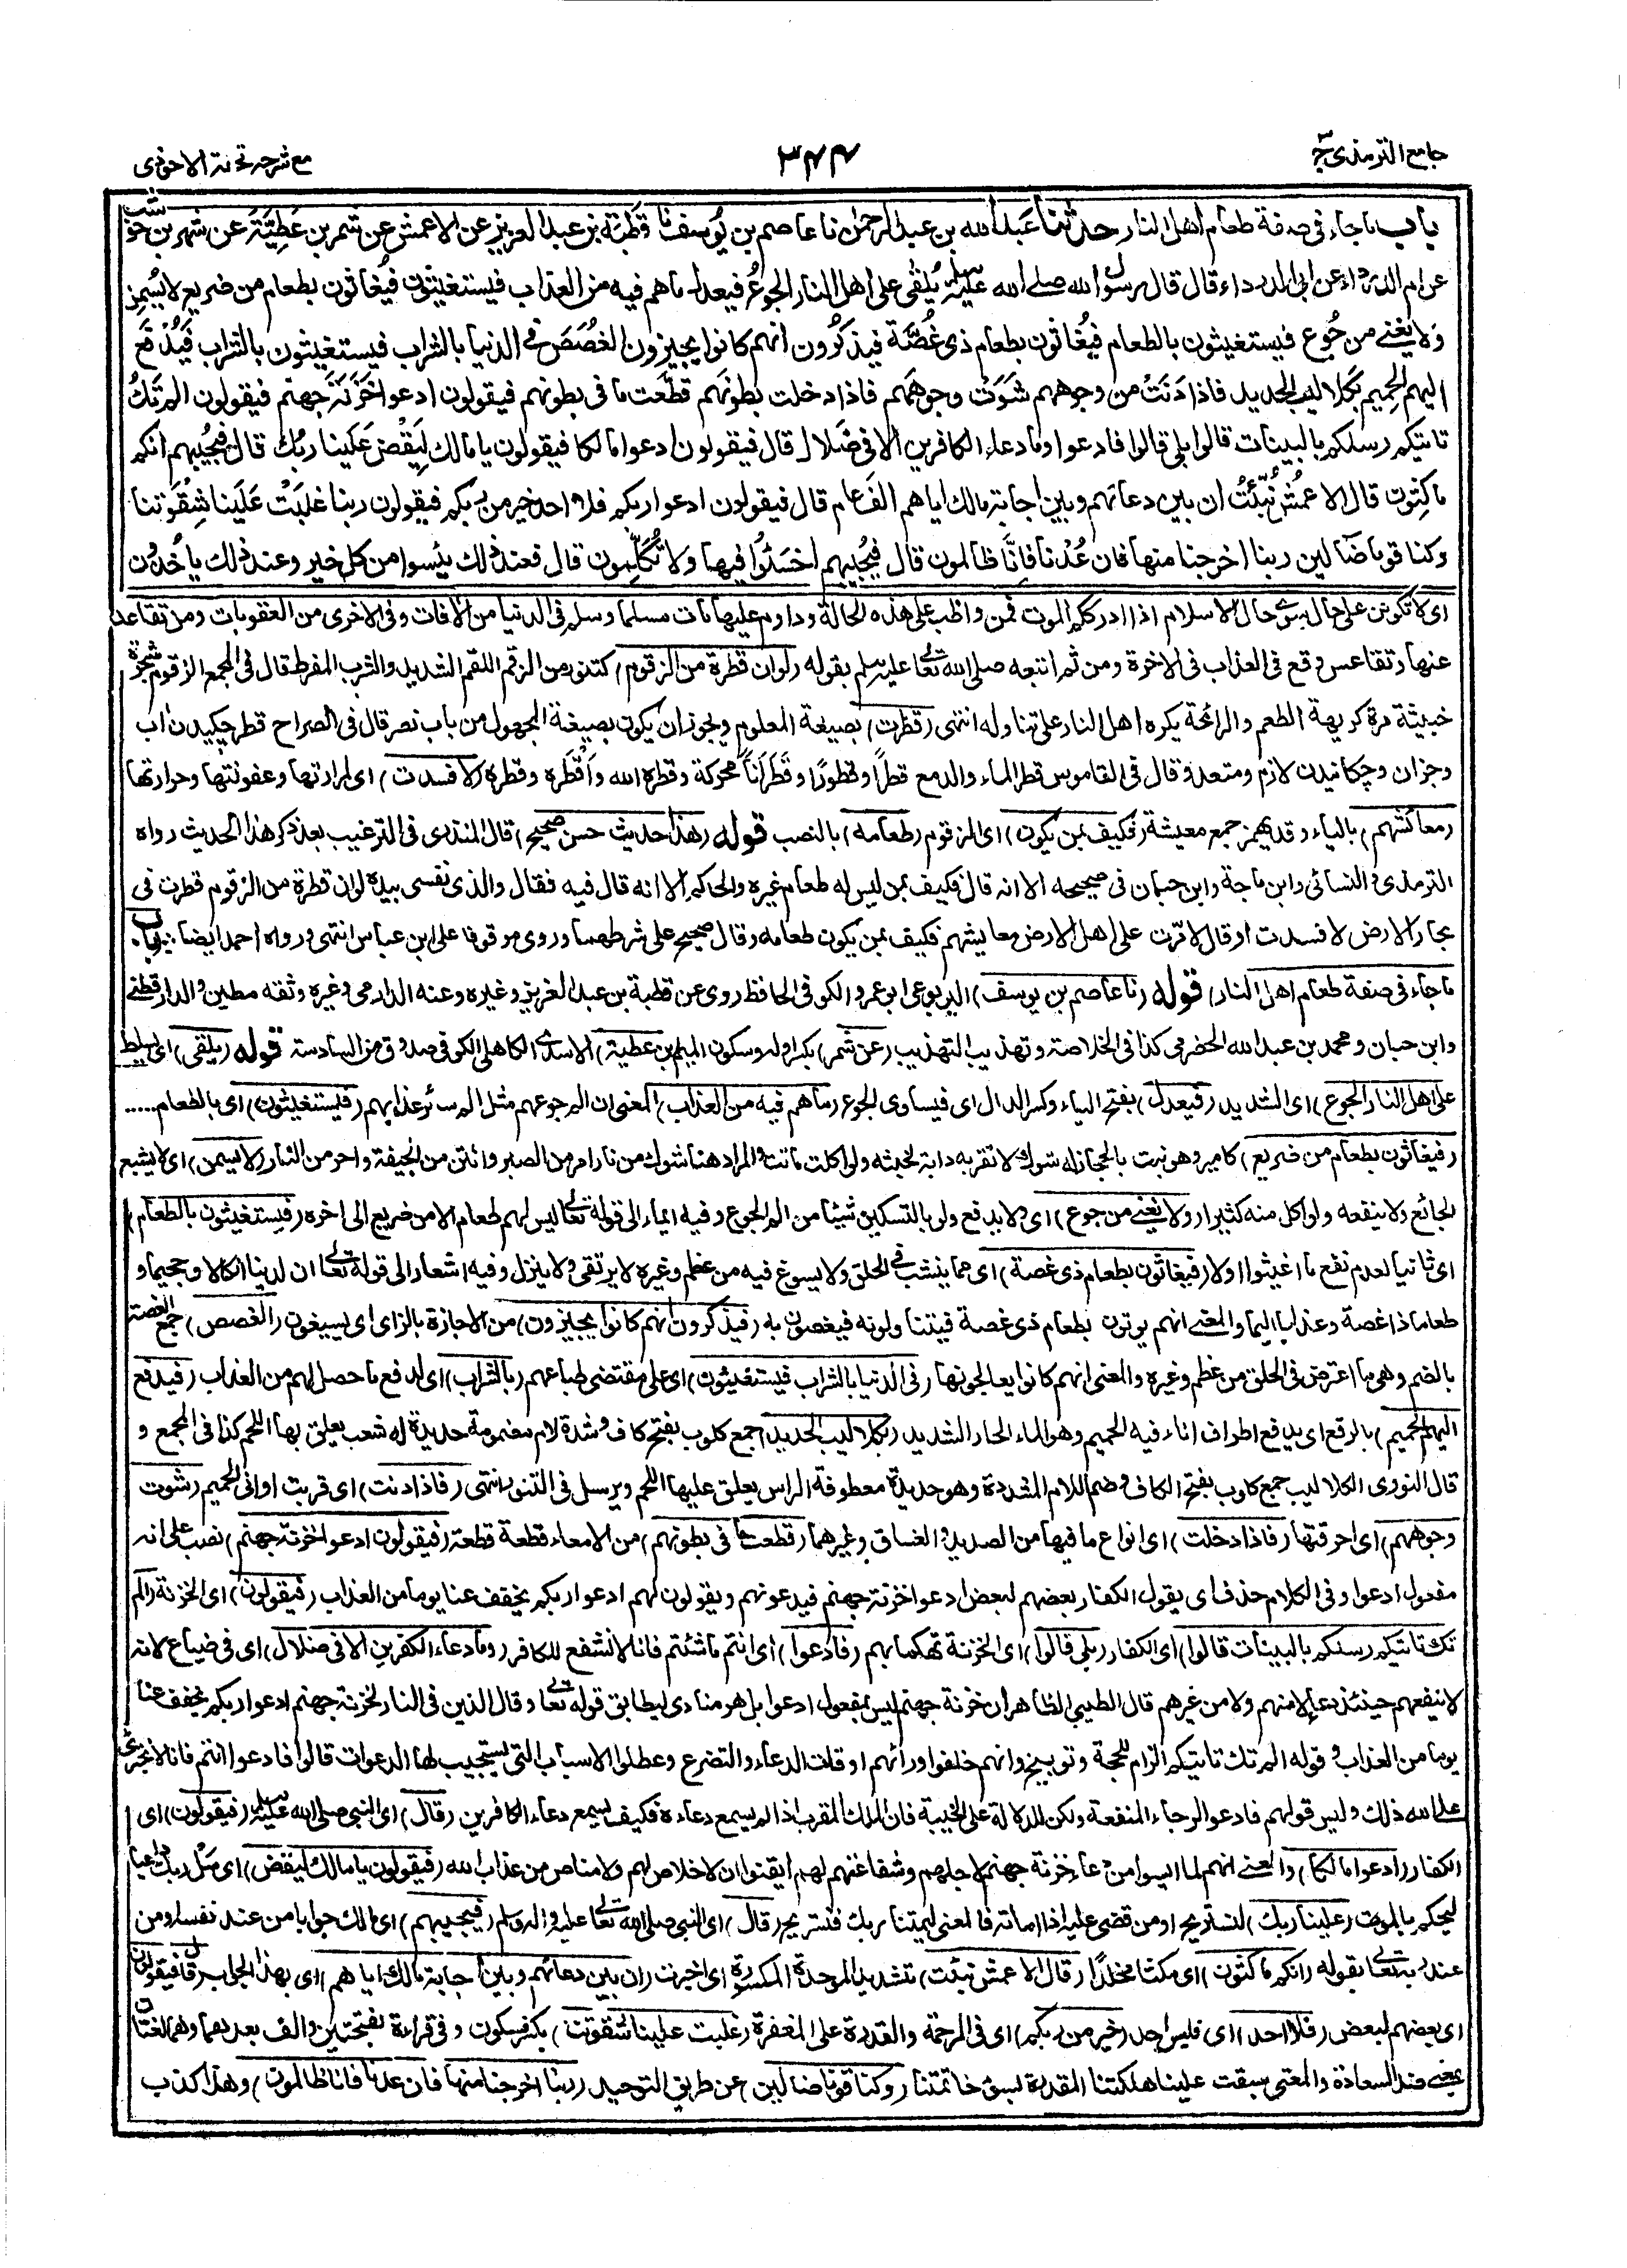 جامع الترمذي ج٣
٣٤٤
مع شرحه تحفة الاحوذى
باب ما جاء فى صفة طعام اهل النار حدثنا عبد الله بن عبد الرحمن نا عاصم بن يُوسف نا قُطْبَة بن عبد العزيز عن الاعمش عن شمر بن عَطِيَّةَ عن شهر بن حوشب
عن ام الدرداء عن ابى الدرداء قال قال رسول الله صلى الله عليه وسلم يُلْقٰى على اهل النار الجوعُ فيعدل ما هم فيه من العذاب فيستغيثون فيُغاثون بطعام من ضريع لا يُسمن
وَلا يُغنى من جُوع فيستغيثون بالطعام فيُغاثون بطعام ذى غُصَّة فيذكُرون انهم كانوا يجيزون الغُصَصَ فى الدنيا بالشراب فيستغيثون بالشراب فَيُدْفَع
اليهم الحميم بكلاليب الحديد فاذا دَنَتْ من وجوههم شَوَتْ وجوهَهم فاذا دخلت بطونَهم قطَّعت ما فى بطونهم فيقولون ادعوا خَزَنَةَ جهنم فيقولون الم تَكُ
تاتيكم رسلكم بالبينات قالوا بلى قالوا فادعوا وما دعاء الكافرين الا فى ضَلال قال فيقولون ادعوا مالكا فيقولون يا مالك لِيَقْضِ عَلَينا ربُّك قال فيُجيبهم انكم
ماكثون قال الاعمش نُبِّئْتُ ان بين دعائهم وبين اجابة مالك اياهم الفَ عام قال فيقولون ادعوا ربكم فلا احد خير من ربكم فيقولون ربنا غلَبَتْ عَلَينا شِقْوَتنا
وكنا قوما ضآلين ربنا اخرجنا منها فان عُدْنا فانَّا ظالمون قال فيُجيبهم اخسَئُوا فيها ولا تُكَلِّمون قال فعند ذلك يئسوا من كل خير وعند ذلك ياخُذُون
اى لا تكونن على حال سوى حال الاسلام اذا ادرككم الموت فمن واظب على هذه الحالة وداوم عليها مات مسلما وسلم فى الدنيا من الافات وفى الاخرى من العقوبات ومن تقاعد
عنها وتقاعس وقع فى العذاب فى الاخرة ومن ثم اتبعه صلى الله تعالى عليه وسلم بقوله (لو ان قطرة من الزقوم) كتنور من الزقم اللقم الشديد والشرب المفرط قال فى المجمع الزقوم شجرة
خبيثة مرة كريهة الطعم والرائحة يكره اهل النار على تناوله انتهى (قطرت) بصيغة المعلوم ويجوز ان يكون بصيغة المجهول من باب نصر قال فى الصراح قطر چكيدن اب
وجزان وچكانيدن لازم ومتعد وقال فى القاموس قطر الماء والدمع قطرًا وقطورًا وقَطَرَانًا محركة وقطره الله واَقْطَره وقطره (لافسدت) اى لمرارتها وعفونتها وحرارتها
(معائشهم) بالياء وقد يهمز جمع معيشة (فكيف بمن يكون) اى الزقوم (طعامه) بالنصب قوله (هذا حديث حسن صحيح) قال المنذرى فى الترغيب بعد ذكر هذا الحديث رواه
الترمذى والنسائى وابن ماجة وابن حبان فى صحيحه الا انه قال فكيف بمن ليس له طعام غيره والحاكم الا انه قال فيه فقال والذى نفسى بيده لو ان قطرة من الزقوم قطرت فى
بحار الارض لافسدت او قال لامرت على اهل الارض معايشهم فكيف بمن يكون طعامه وقال صحيح على شرطهما وروى موقوفا على ابن عباس انتهى ورواه احمد ايضا: باب
ما جاء فى صفة طعام اهل النار) قوله (نا عاصم بن يوسف) اليربوعى ابو عمرو الكوفى الحافظ روى عن قطبة بن عبد العزيز وغيره وعنه الدارمى وغيره وثقه مطين والدارقطنى
وابن حبان ومحمد بن عبد الله الحضرمى كذا فى الخلاصة وتهذيب التهذيب (عن شمر) بكسر اوله وسكون الميم (بن عطية) الاسدى الكاهلى الكوفى صدوق من السادسة قوله (يلقى) اى يسلط
على اهل النار الجوع) اى الشديد (فيعدل) بفتح الياء وكسر الدال اى فيساوى الجوع (ما هم فيه من العذاب) المعنى ان الم جوعهم مثل الم سائر عذابهم (فيستغيثون) اى بالطعام.....
(فيغاثون بطعام من ضريع) كامير وهو نبت بالحجاز له شوك لا تقربه دابة لخبثه ولو اكلت ماتت والمراد هنا شوك من نار امر من الصبر وانتن من الجيفة واحر من النار (لا يسمن) اى لا يشبع
الجائع ولا ينفعه ولو اكل منه كثيرا (ولا يغنى من جوع) اى ولا يدفع ولو بالتسكين شيئا من الم الجوع وفيه ايماء الى قوله تعالى ليس لهم طعام الا من ضريع الى اخره (فيستغيثون بالطعام)
اى ثانيا لعدم نفع ما اغيثوا اولا (فيغاثون بطعام ذى غصة) اى مما ينشب فى الحلق ولا يسوغ فيه من عظم وغيره لا يرتقى ولا ينزل وفيه اشعار الى قوله تعالى ان لدينا انكالا وجحيما و
طعاما ذا غصة وعذابا اليما والمعنى انهم يوتون بطعام ذى غصة فيتناولونه فيغصون به (فيذكرون انهم كانوا يجيزون) من الاجازة بالزاى اى يسيغون (الغصص) جمع الغصة
بالضم وهى ما اعترض فى الحلق من عظم وغيره والمعنى انهم كانوا يعالجونها (فى الدنيا بالشراب فيستغيثون) اى على مقتضى طباعهم (بالشراب) اى لدفع ما حصل لهم من العذاب (فيدفع
اليهم الحميم) بالرفع اى يدفع اطراف اناء فيه الحميم وهو الماء الحار الشديد (بكلاليب الحديد) جمع كلوب بفتح كاف وشدة لام مضمومة حديدة له شعب يعلق بها اللحم كذا فى المجمع و
قال النووى الكلاليب جمع كلوب بفتح الكاف وضم اللام المشددة وهو حديدة معطوفة الراس يعلق عليها اللحم ويرسل فى التنور انتهى (فاذا دنت) اى قربت اوانى الحميم (شوت
وجوههم) اى احرقتها (فاذا دخلت) اى انواع ما فيها من الصديد والغساق وغيرهما (قطعت ما فى بطونهم) من الامعاء قطعة قطعة (فيقولون ادعوا خزنة جهنم) نصب على انه
مفعول ادعوا وفى الكلام حذف اى يقول الكفار بعضهم لبعض ادعوا خزنة جهنم فيدعونهم ويقولون لهم ادعوا ربكم يخفف عنا يوما من العذاب (فيقولون) اى الخزنة (الم
تك تاتيكم رسلكم بالبينات قالوا) اى الكفار (بلى قالوا) اى الخزنة تهكما بهم (فادعوا) اى انتم ما شئتم فانا لا نشفع للكافر (وما دعاء الكفرين الا فى ضلال) اى فى ضياع لانه
لا ينفعهم حينئذ دعاء لا منهم ولا من غيرهم قال الطيبى الظاهر ان خزنة جهنم ليس بمفعول ادعوا بل هو منادى ليطابق قوله تعالى وقال الذين فى النار لخزنة جهنم ادعوا ربكم يخفف عنا
يوما من العذاب وقوله الم تك تاتيكم الزام للحجة وتوبيخ وانهم خلفوا وراءهم اوقات الدعاء والتضرع وعطلوا الاسباب التى يستجيب لها الدعوات قالوا فادعوا انتم فانا لا نجترئ
على الله ذلك وليس قولهم فادعوا لرجاء المنفعة ولكن للدلالة على الخيبة فان الملك المقرب اذا لم يسمع دعاءه فكيف يسمع دعاء الكافرين (قال) اى النبى صلى الله عليه وسلم (فيقولون) اى
الكفار (ادعوا مالكا) والمعنى انهم لما ايسوا من دعاء خزنة جهنم لاجلهم وشفاعتهم لهم ايقنوا ان لا خلاص لهم ولا مناص من عذاب الله (فيقولون يا مالك ليقض) اى سل ربك داعيا
ليحكم بالموت (علينا ربك) لنستريح او من قضى عليه اذا اماته فالمعنى ليمتنا ربك فنستريح (قال) اى النبى صلى الله تعالى عليه واله وسلم (فيجيبهم) اى مالك جوابا من عند نفسه او من
عند ربه تعالى بقوله (انكم ماكثون) اى مكثا مخلدًا (قال الاعمش نبئت) بتشديد الموحدة المكسورة اى اخبرت (ان بين دعائهم وبين اجابة مالك اياهم) اى بهذا الجواب (قال فيقولون)
اى بعضهم لبعض (فلا احد) اى فليس احد (خير من ربكم) اى فى الرحمة والقدرة على المغفرة (غلبت علينا شقوتنا) بكسر فسكون وفى قراءة بفتحتين والف بعدهما وهما لغتان
بمعنى ضد السعادة والمعنى سبقت علينا هلكتنا المقدرة بسوء خاتمتنا (وكنا قوما ضالين) عن طريق التوحيد (ربنا اخرجنا منها فان عدنا فانا ظالمون) وهذا كذب